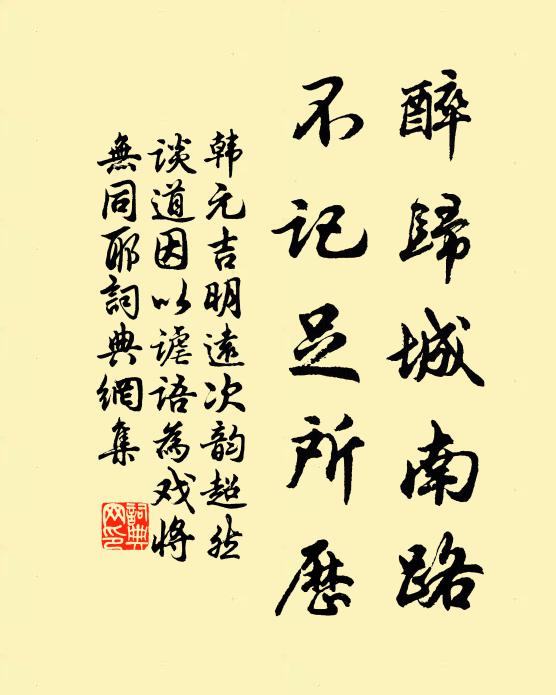 醉歸城南路
不記足所歷
韩元吉明遠次韵超然
谈道因以謔语為戏將
無同耶詞典網集
詞典
网印